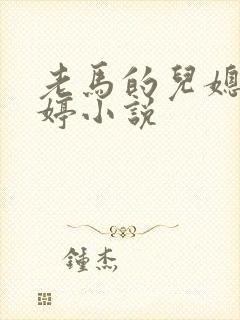 老馬的兒媳
婷小說
鍾杰